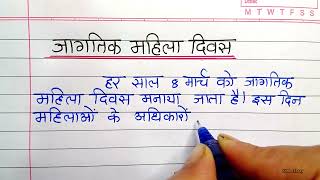 M T W T F S S
जागतिक महिला दिवस
हर साल 8 मार्च को जागतिक
महिला दिवस मनाया जाता है। इस दिन
महिलाओं के अधिकारों